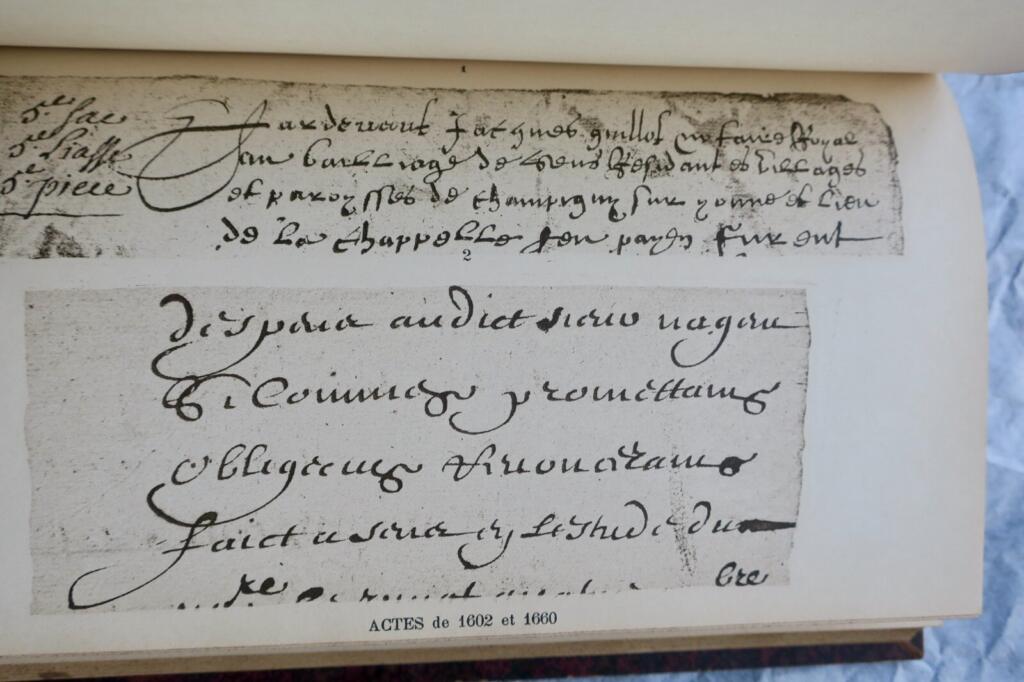 1
5e sac
5e Liasse
5e piece
Pardevant Jacques guillot Royal
au bailliage de Sens Residant es villages
et paroysses de champigny sur yonne et lieu
de la chappelle feu payen furent
2
despens audict sieur
Si Comme promettans
Obligeans Renonceans
faict a Sens en Lestude du
bre
ACTES de 1602 et 1660